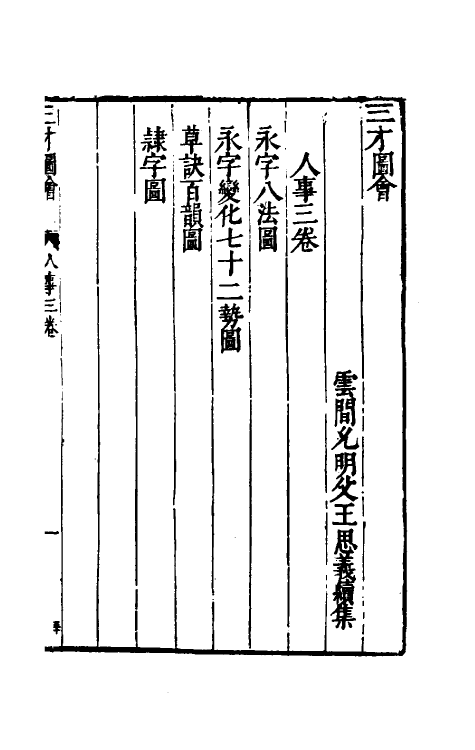 三才圖會
雲間允明父王思義續集
人事三卷
永字八法圖
永字變化七十二勢圖
草訣百韻圖
隸字圖
三才圖會 人事三卷 一